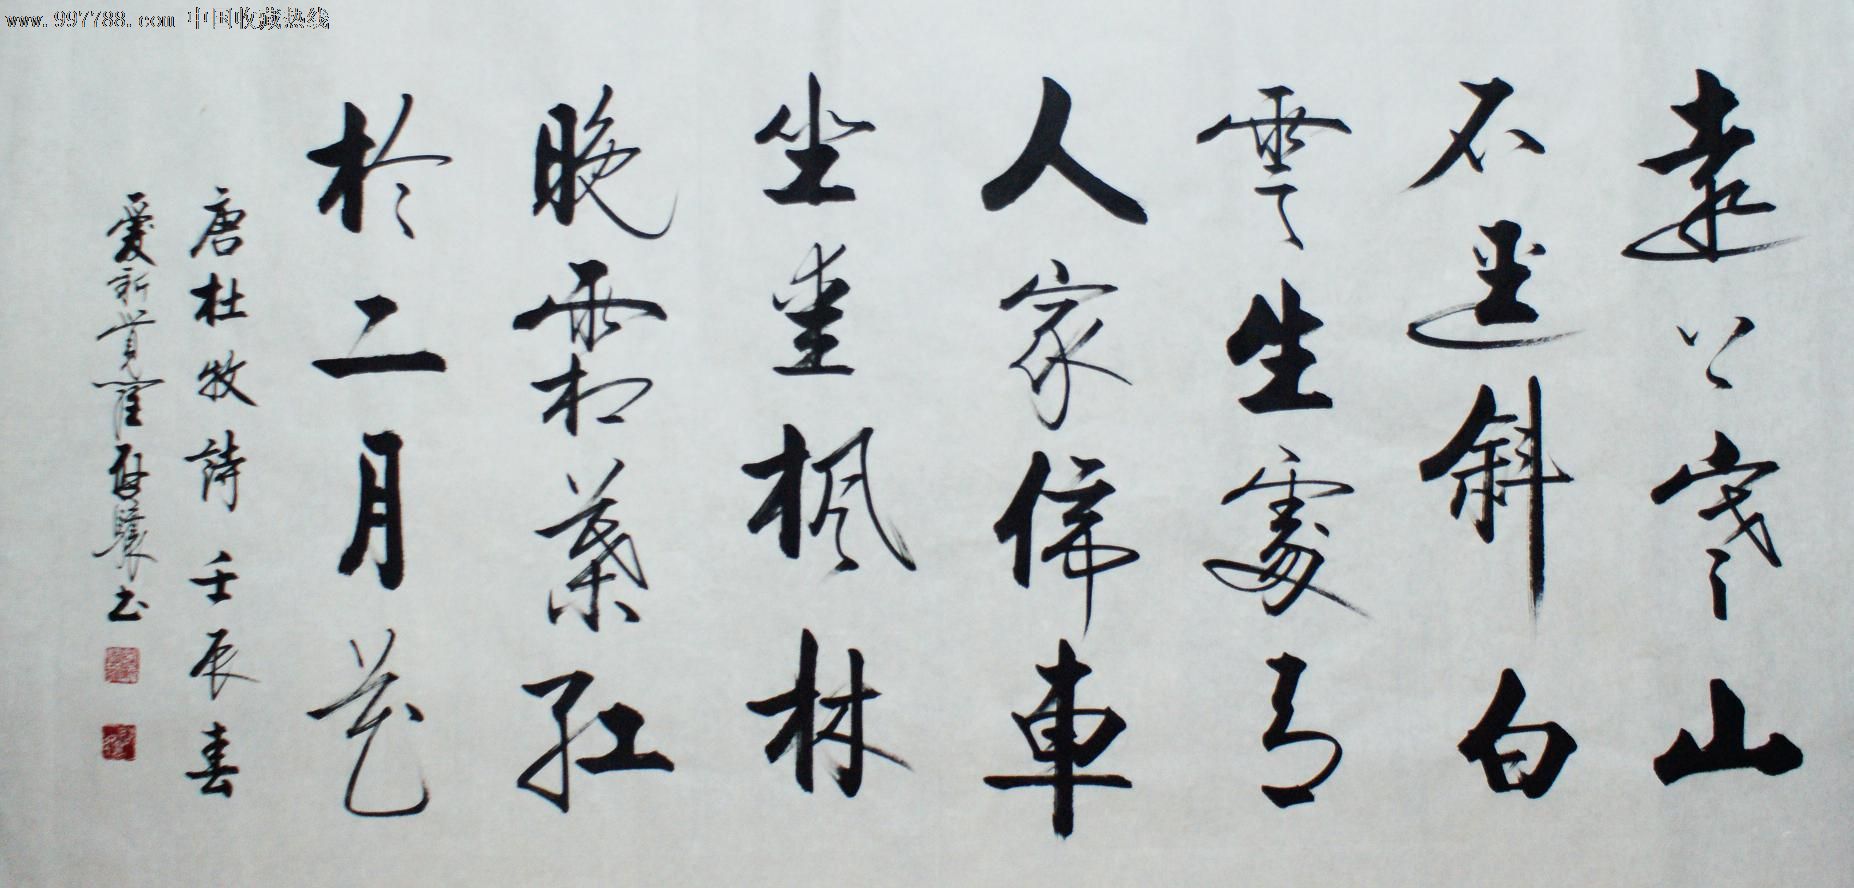 www.997788.com 中国收藏热线
遠上寒山
石逕斜白
雲生處有
人家停車
坐愛楓林
晚霜葉紅
於二月花
唐杜牧詩壬辰春
愛新覺羅啟驤书